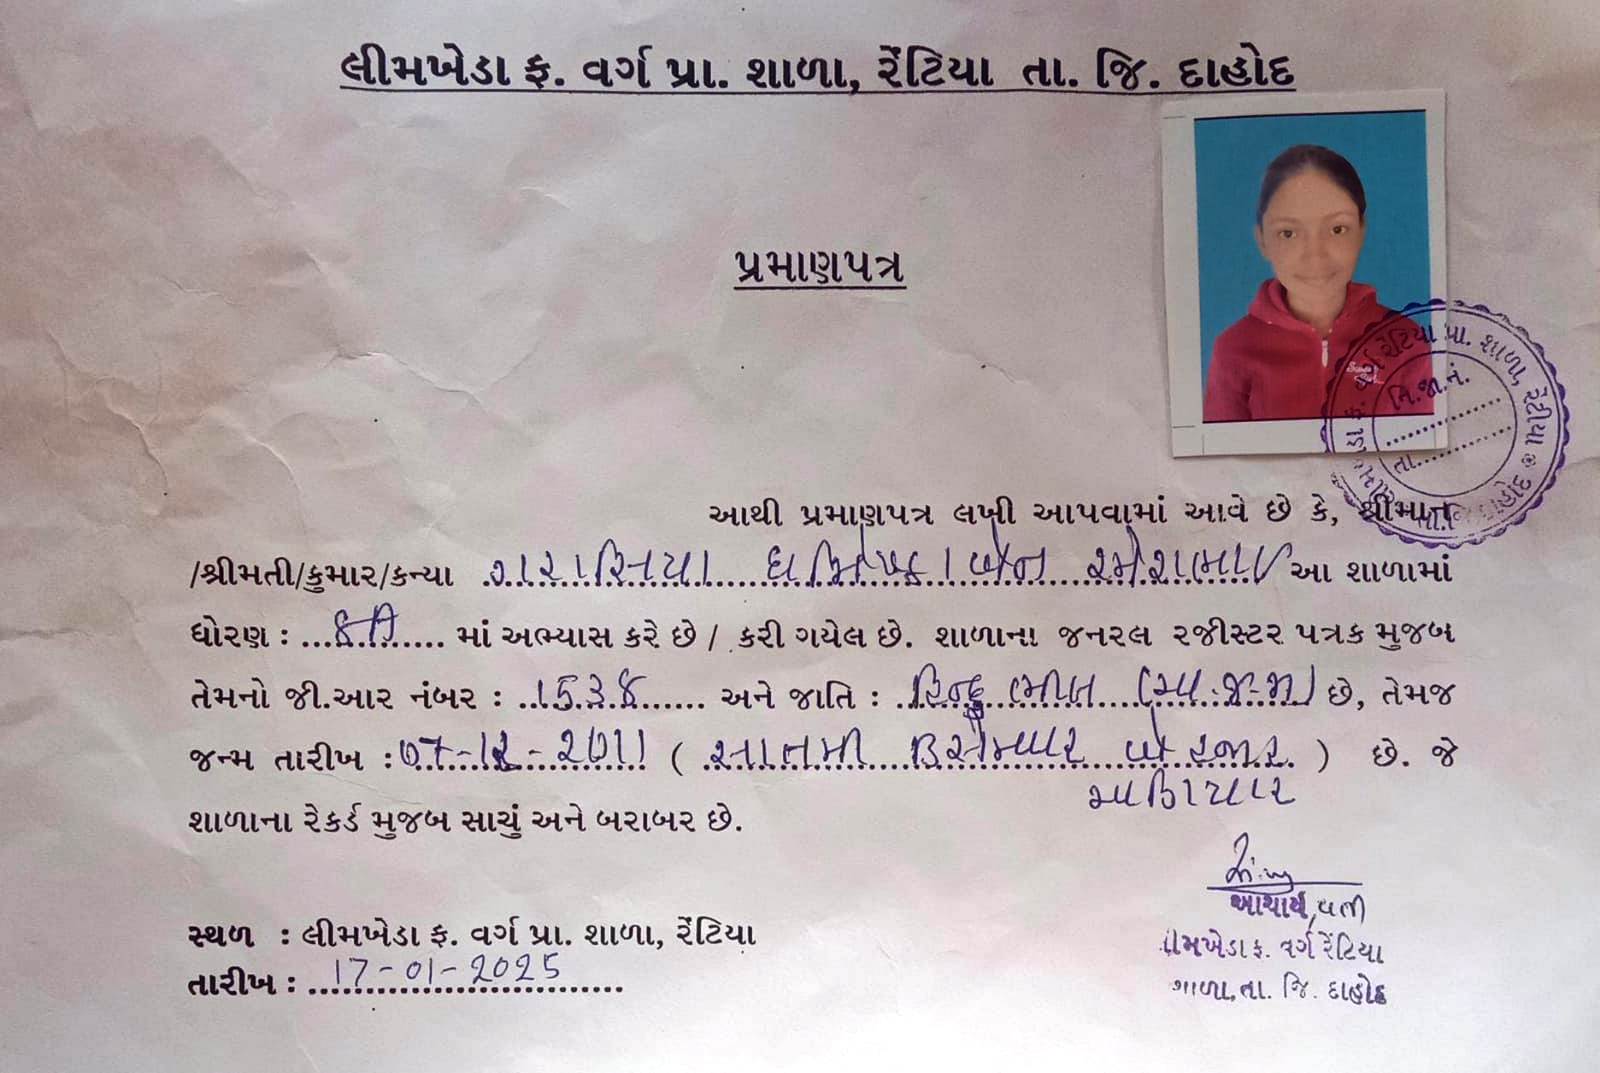 લીમખેડા ફ. વર્ગ પ્રા. શાળા, રેંટિયા તા. જિ. દાહોદ
પ્રમાણપત્ર
આથી પ્રમાણપત્ર લખી આપવામાં આવે છે કે, શ્રીમાન
/શ્રીમતી/કુમાર/કન્યા ગરાસિયા ધર્મિષ્ઠાબેન રમેશભાઈ આ શાળામાં
ધોરણ : 8 મા અભ્યાસ કરે છે / કરી ગયેલ છે. શાળાના જનરલ રજીસ્ટર પત્રક મુજબ
તેમનો જી.આર નંબર : 1538 અને જાતિ : હિન્દુ ભીલ (આ.જ.જા) છે, તેમજ
જન્મ તારીખ : 07-12-2011 ( સાતમી ડિસેમ્બર બે હજાર ) છે. જે
અગિયાર
શાળાના રેકર્ડ મુજબ સાચું અને બરાબર છે.
આચાર્ય, વતી
લીમખેડા ફ. વર્ગ રેંટિયા
શાળા, તા. જિ. દાહોદ
સ્થળ : લીમખેડા ફ. વર્ગ પ્રા. શાળા, રેંટિયા
તારીખ : 17-01-2025
વર્ગ રેંટિયા પ્રા. શાળા, રેંટીયા
નિ.જા.નં.
તા.